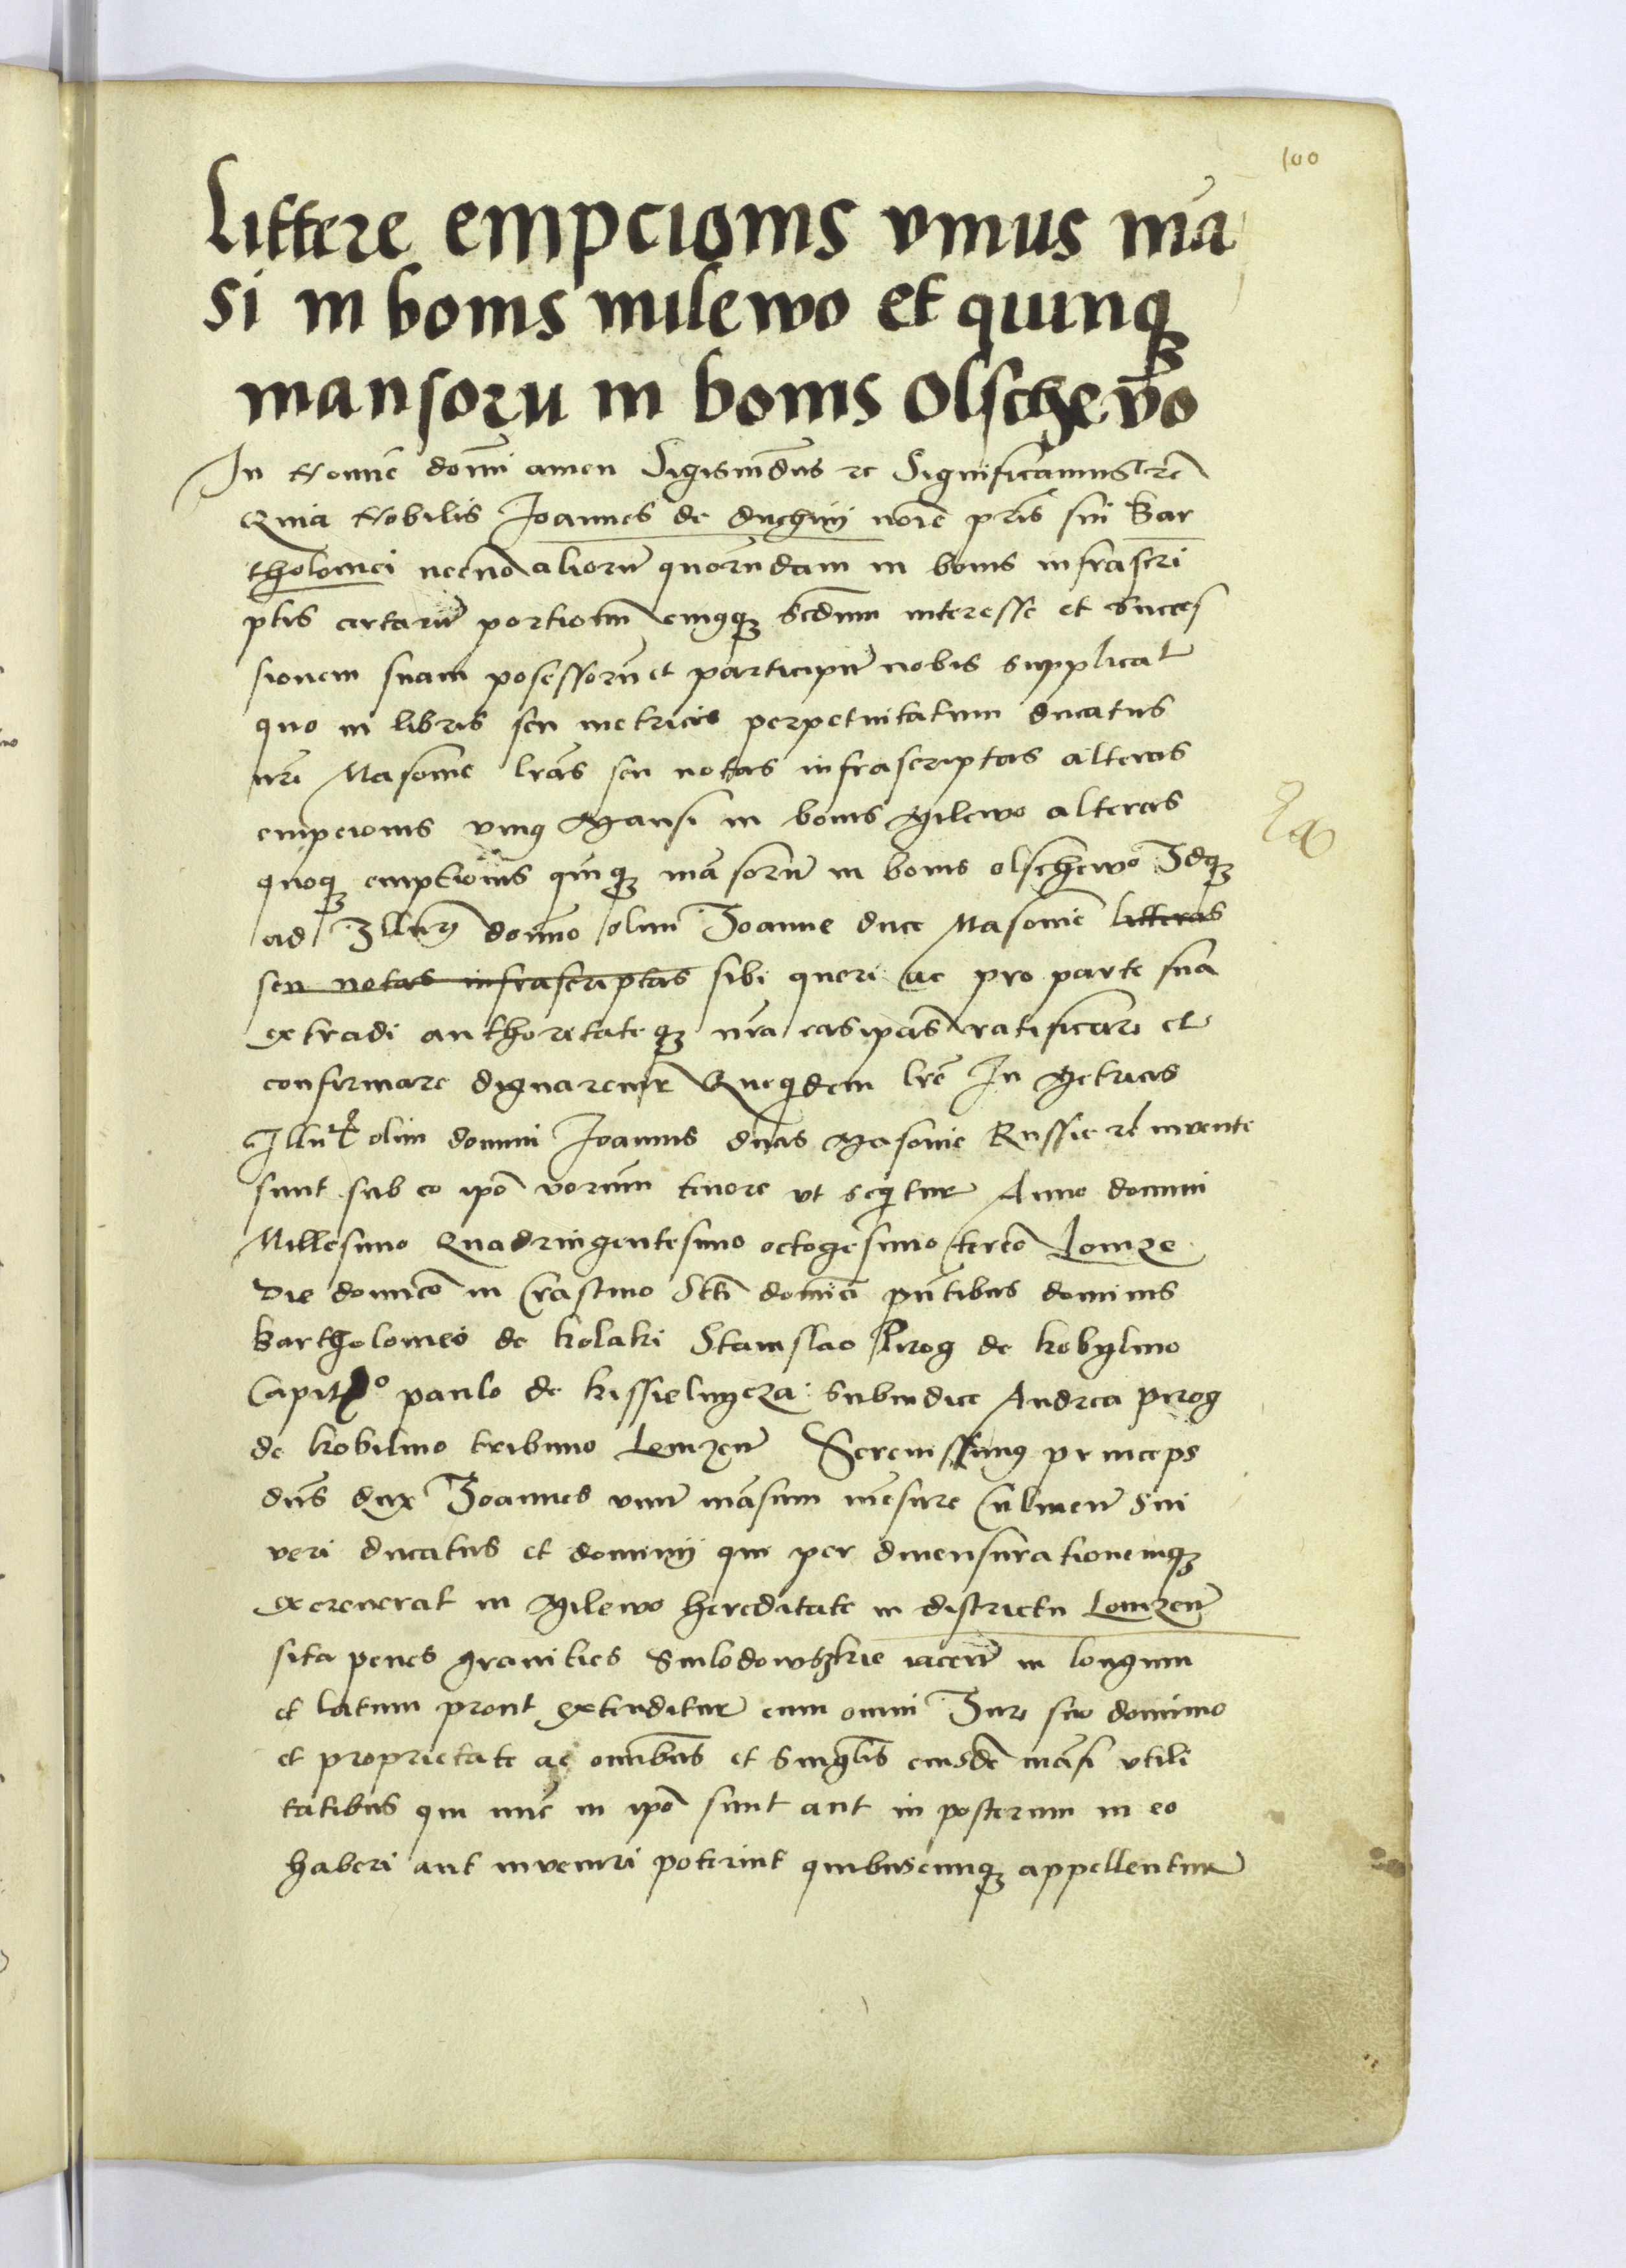 100
Littere empcionis vnius mā
si in bonis milewo et quinqꝫ
mansorū in bonis Olschewo
In Nomīe domī amen Sigismūdus ꝛc Significamus ꝛc
Quia Nobilis Joannes de duchny noīe prīs sui Bar
tholomei necnō aliorū quorūdam in bonis infrascri
ptis certarū portionū cuiusqꝫ scdum interesse et succes
sionem suam posessorū et participū nobis supplicat
quo in libris seu metricis perpetuitatum ducatus
nrī Masouie lrās seu notas infrascriptas alteras
empcionis vniꝰ Mansi in bonis Milewo alteras
quoqꝫ emptionis quīqꝫ māsorū in bonis olschewo Idqꝫ
ad Illus domino olim Joanne duce Masouie litteras
seu notas infrascriptas sibi queri ac pro parte sua
extradi authoritateqꝫ nrā eas ipās ratificare et
confirmare dignaremur Quequidem lrē In Metricis
Illu olim domini Joannis ducis Masouie Russie ꝛc invente
sunt sub eo ipō verum tenore vt sequitur Anno domini
Millesimo Quadringentesimo octogesimo tercio Lomze
die domīco in Crastino Sctī domīci pūtibus dominis
Bartholomeo de kolaki Stanislao Pirog de kobylino
Capit° paulo de kissielnycza Subiudice Andrea pirog
de kobilino tribuno Lomzeñ Serenissimꝰ princeps
dūs dux Joannes vnū māsum mēsure Culmeñ Sui
veri ducatus et dominij qui per dimensurationemqꝫ
excreuerat in Milewo hereditate in districtu Lomzeñ
sita penes granities Smlodowszkie iaceñ in longum
et latum prout extenditur cum omni Jure suo dominio
et proprietate ac omībus et singlis eiusdē māsi vtili
tatibus qui nūc in ipō sunt aut in posterum in eo
haberi aut inveniri poterint quibuscunqꝫ appellentur